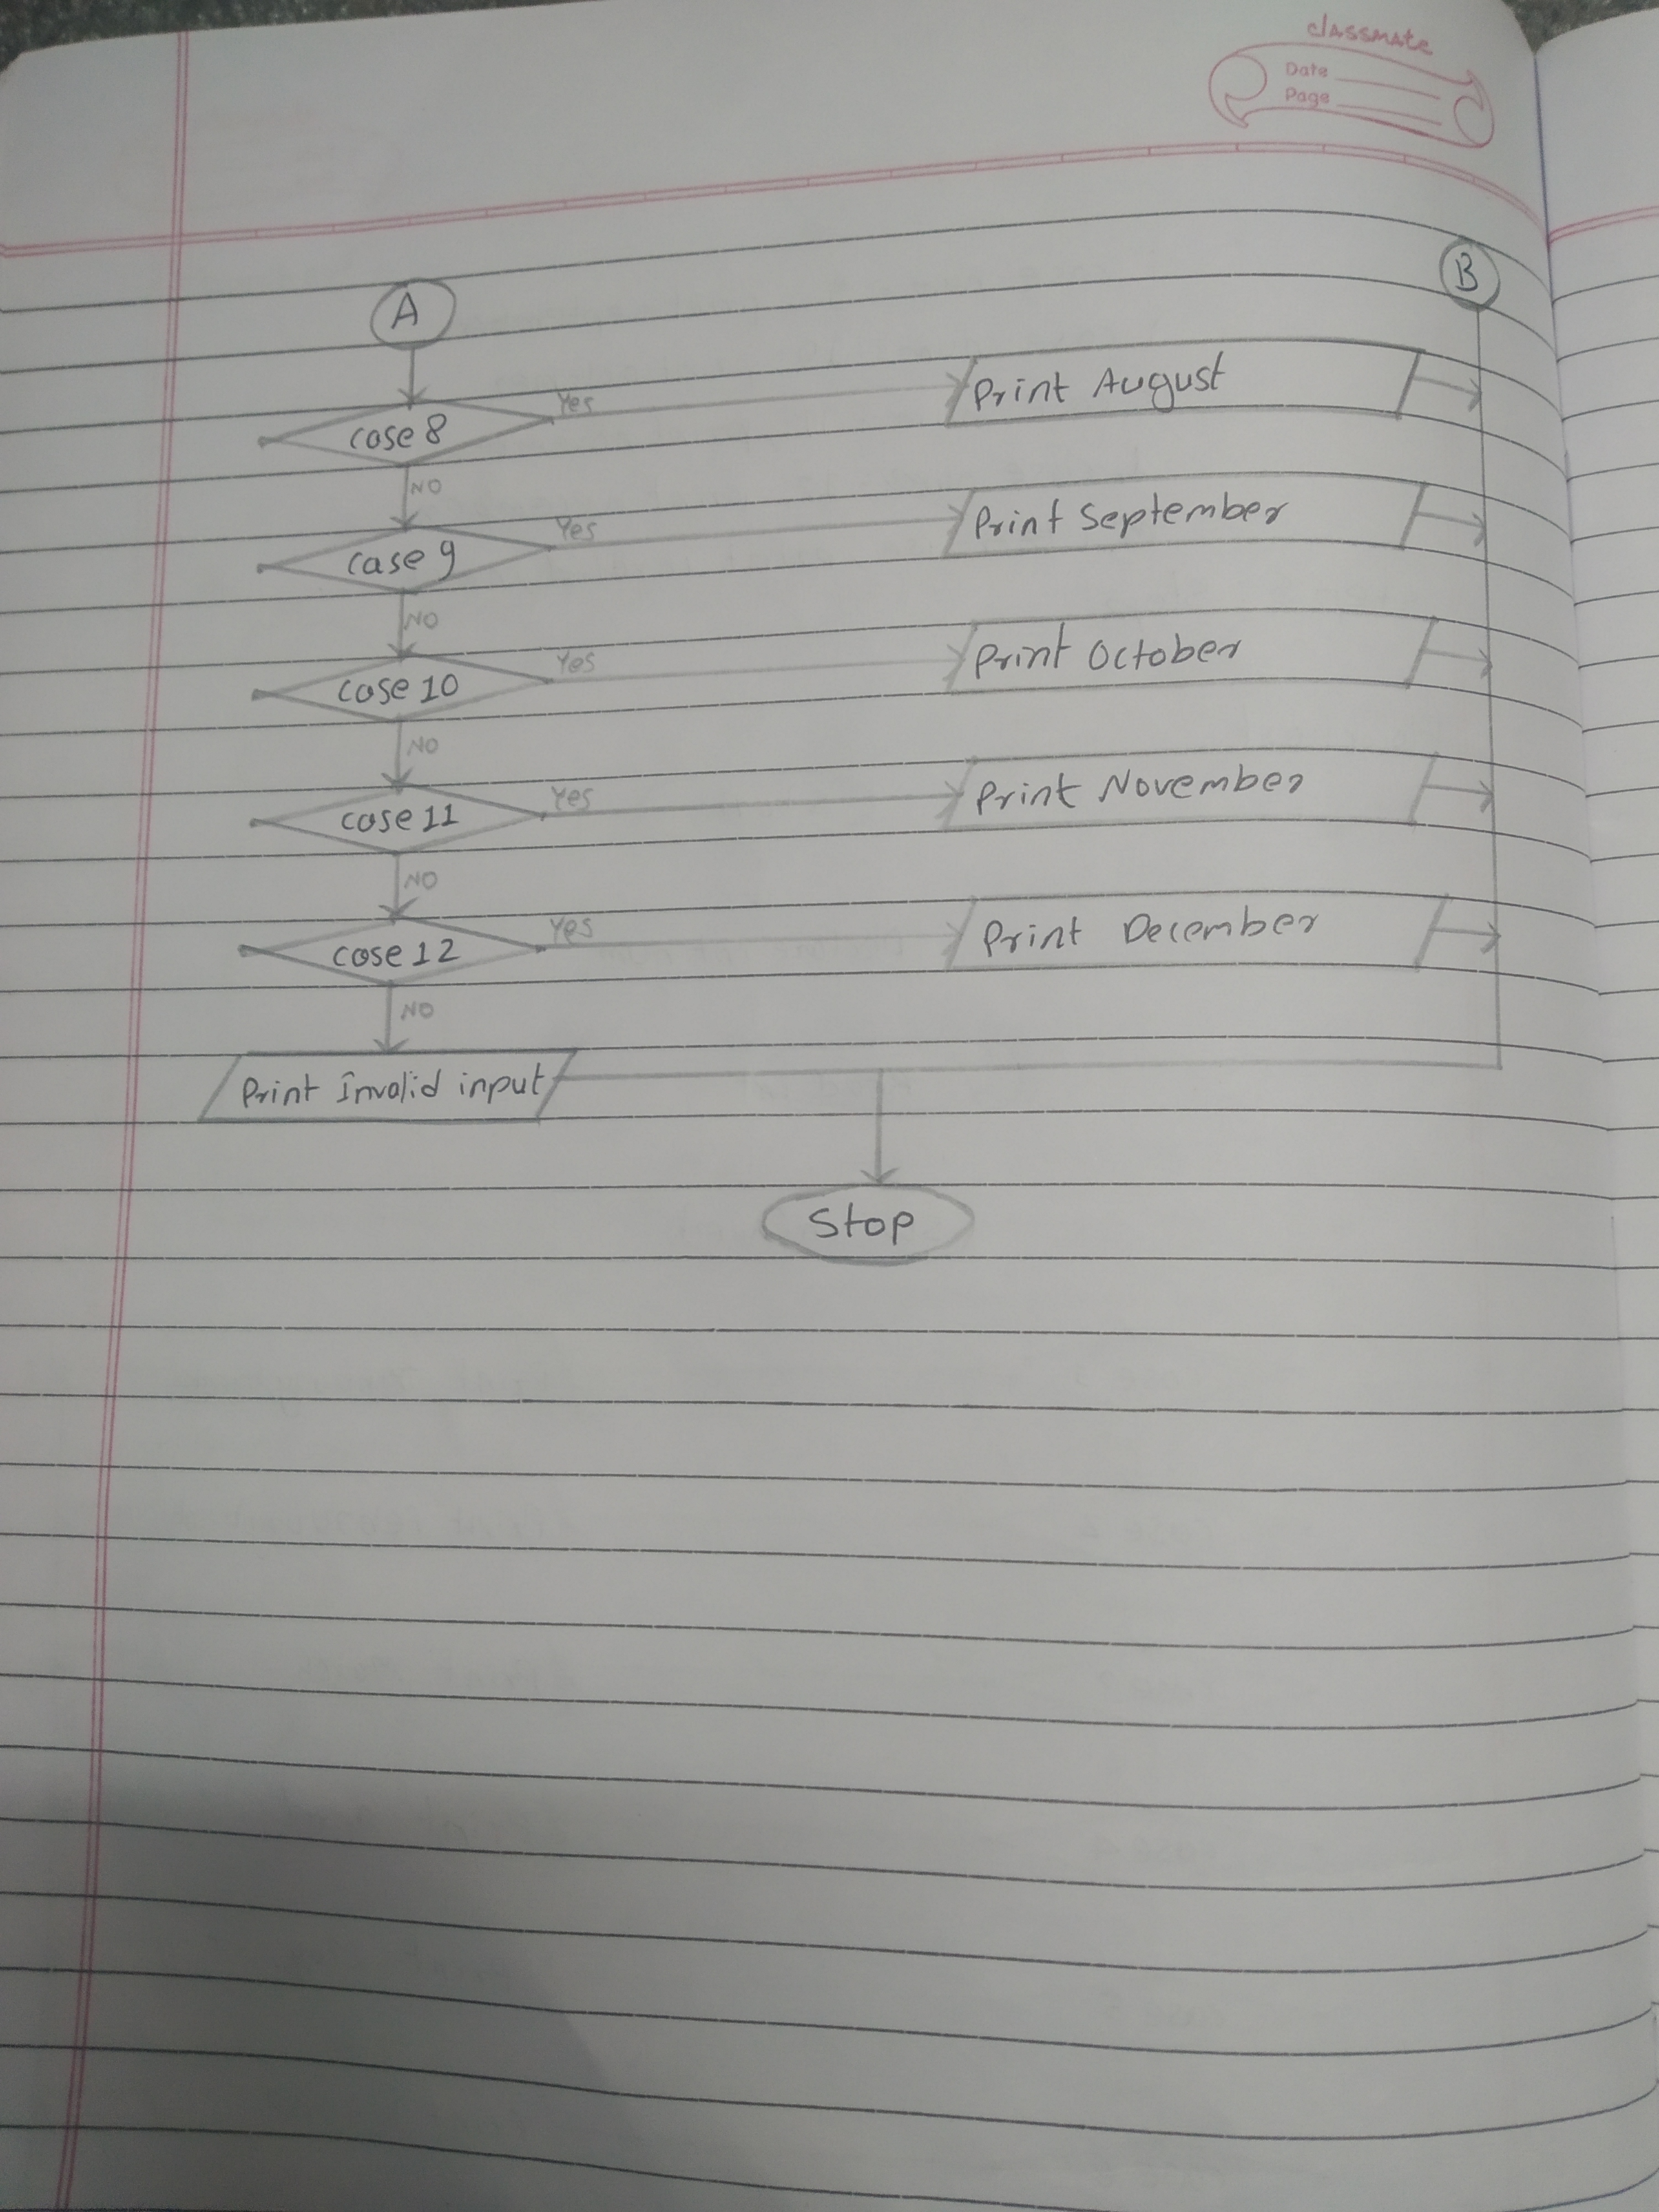 classmate
Date
Page
A
B
case 8
Yes
Print August
NO
case 9
Yes
Print September
NO
case 10
Yes
Print October
NO
case 11
Yes
Print November
NO
case 12
Yes
Print December
NO
Print Invalid input
Stop